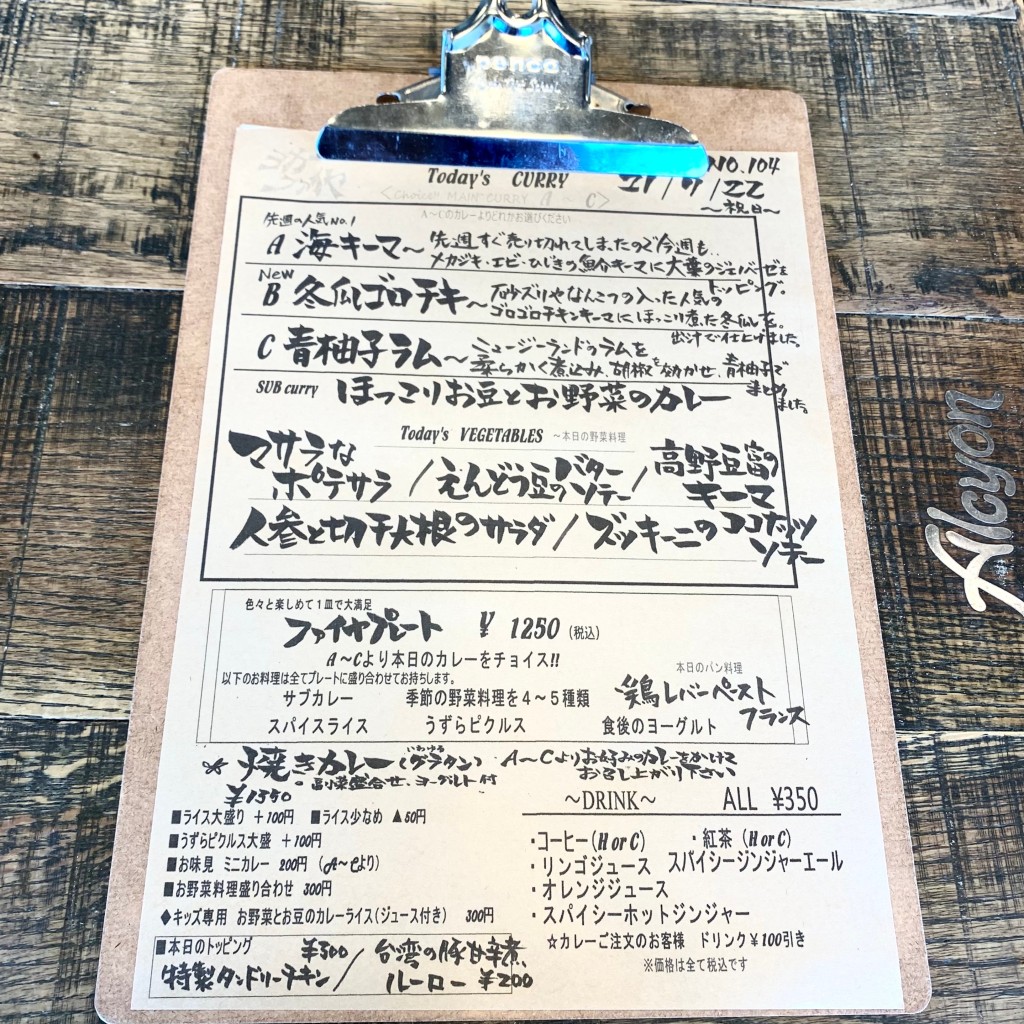 penco
NO.104
Today's CURRY
21/9/22
〜祝日〜
<Choice!! MAIN CURRY A 〜 C>
A〜Cのカレーよりどれかお選びください
先週の人気No.1
A 海キーマ〜 先週すぐ売り切れてしまったので今週も..
メカジキ・エビ・ひじきの魚介キーマに大葉のジェノベーゼを
トッピング。
New
B 冬瓜ゴロチキ〜 砂ズリやなんこつの入った人気の
ゴロゴロチキンキーマにほっこり煮た冬瓜を。
出汁で仕上げました。
C 青柚子ラム〜 ニュージーランドのラムを
柔らかく煮込み、胡椒を効かせ、青柚子で
まとめ
ました。
SUB curry ほっこりお豆とお野菜のカレー
Today's VEGETABLES 〜本日の野菜料理
マサラな
ポテサラ / えんどう豆のバター
ソテー / 高野豆富の
キーマ
人参と切干大根のサラダ / ズッキーニのココナッツ
ソテー
色々と楽しめて1皿で大満足
ファイヤプレート ¥ 1250 (税込)
A〜Cより本日のカレーをチョイス!!
以下のお料理は全てプレートに盛り合わせてお持ちします。
本日のパン料理
サブカレー 季節の野菜料理を4〜5種類 鶏レバーペースト
フランス
スパイスライス うずらピクルス 食後のヨーグルト
焼きカレー(いわゆるグラタン) A〜Cよりお好みのカレーをかけて
お召し上がり下さい
副菜盛合せ、ヨーグルト付
¥1350
■ライス大盛り +100円 ■ライス少なめ ▲50円
■うずらピクルス大盛 +100円
■お味見 ミニカレー 200円 (A〜Cより)
■お野菜料理盛り合わせ 300円
◆キッズ専用 お野菜とお豆のカレーライス(ジュース付き) 300円
■本日のトッピング
特製タンドリーチキン ¥300 / 台湾の豚甘辛煮
ルーロー ¥200
〜DRINK〜 ALL ¥350
・コーヒー(H or C) ・紅茶 (H or C)
・リンゴジュース スパイシージンジャーエール
・オレンジジュース
・スパイシーホットジンジャー
☆カレーご注文のお客様 ドリンク¥100引き
※価格は全て税込です
Alcyon